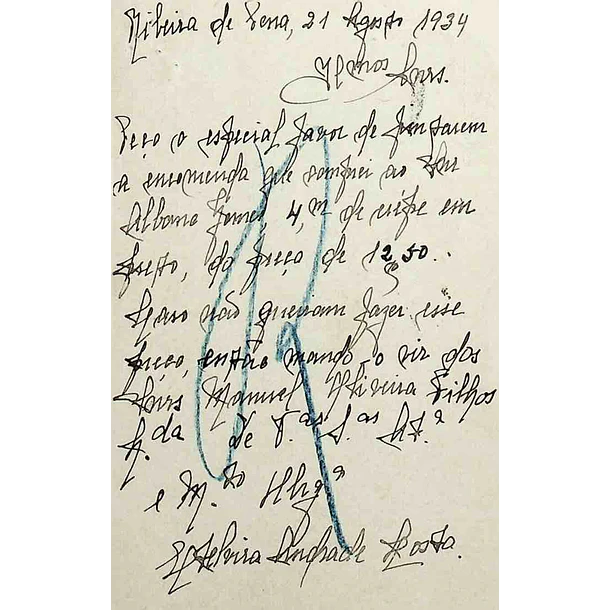 Ribeira de Pena, 21 Agosto 1934
Ilmos Snrs.
Peço o especial favor de juntarem
a encomenda que confiei ao Snr
Albano Gomes, 4,m de crépe em
preto, do preço de 12,50..
Caso não queiram fazer esse
preço, então mando-o vir dos
Snrs Manuel Oliveira Filhos
L.da de V.as S.as At.a
e M.to Obrg.a
Etelvira Andrade Costa.